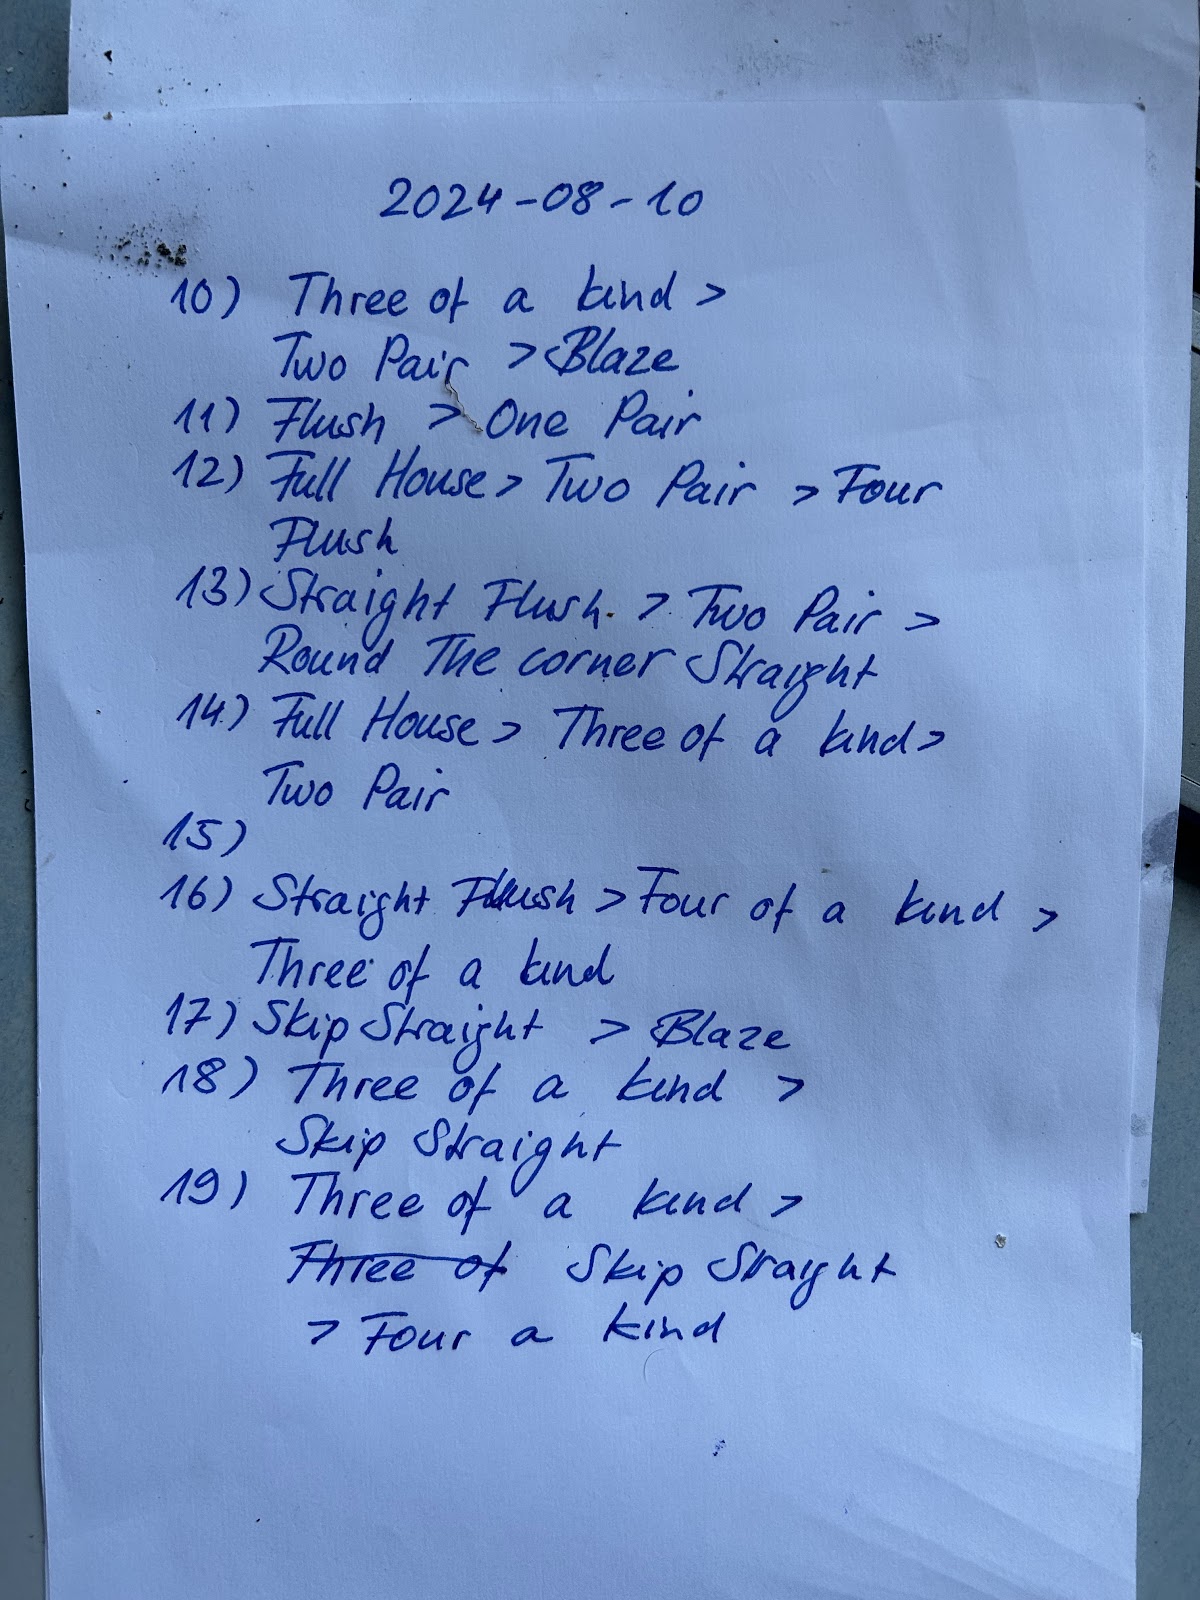 2024-08-10
10) Three of a kind >
Two Pair > Blaze
11) Flush > One Pair
12) Full House > Two Pair > Four
Flush
13) Straight Flush > Two Pair >
Round The corner Straight
14) Full House > Three of a kind >
Two Pair
15)
16) Straight Flush > Four of a kind >
Three of a kind
17) Skip Straight > Blaze
18) Three of a kind >
Skip Straight
19) Three of a kind >
Three of Skip Straight
> Four a kind